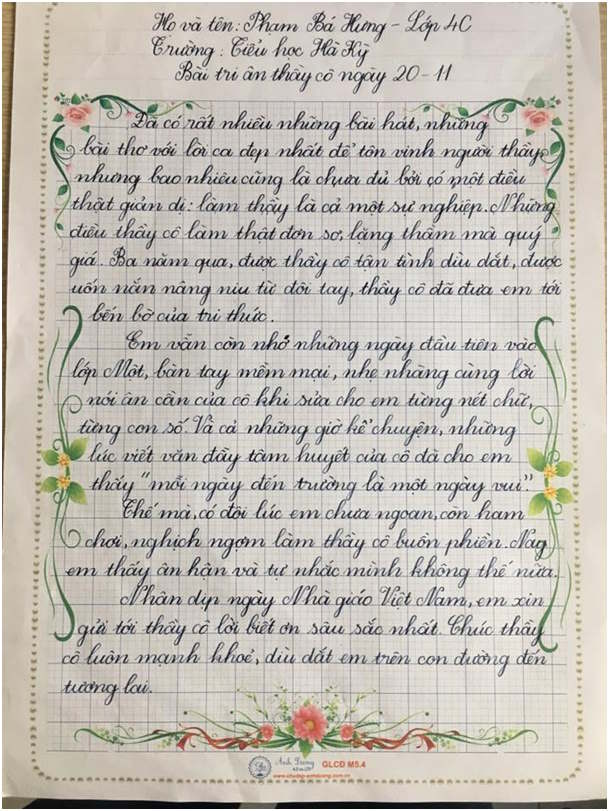 Họ và tên: Phạm Bá Hưng - Lớp 4C
Trường: Tiểu học Hà Kỳ
Bài tri ân thầy cô ngày 20-11
Đã có rất nhiều những bài hát, những
bài thơ với lời ca đẹp nhất để tôn vinh người thầy,
nhưng bao nhiêu cũng là chưa đủ bởi có một điều
thật giản dị: làm thầy là cả một sự nghiệp. Những
điều thầy cô làm thật đơn sơ, lặng thầm mà quý
giá. Ba năm qua, được thầy cô tận tình dìu dắt, được
uốn nắn nâng niu từ đôi tay, thầy cô đã đưa em tới
bến bờ của tri thức.
Em vẫn còn nhớ những ngày đầu tiên vào
lớp Một, bàn tay mềm mại, nhẹ nhàng cùng lời
nói ân cần của cô khi sửa cho em từng nét chữ,
từng con số. Và cả những giờ kể chuyện, những
lúc viết văn đầy tâm huyết của cô đã cho em
thấy "mỗi ngày đến trường là một ngày vui".
Thế mà, có đôi lúc em chưa ngoan, còn ham
chơi, nghịch ngợm làm thầy cô buồn phiền. Nay
em thấy ân hận và tự nhắc mình không thế nữa.
Nhân dịp ngày Nhà giáo Việt Nam, em xin
gửi tới thầy cô lời biết ơn sâu sắc nhất. Chúc thầy
cô luôn mạnh khoẻ, dìu dắt em trên con đường đến
tương lai.
Ánh Dương
GLCĐ M5.4
www.chudep-anhduong.com.vn